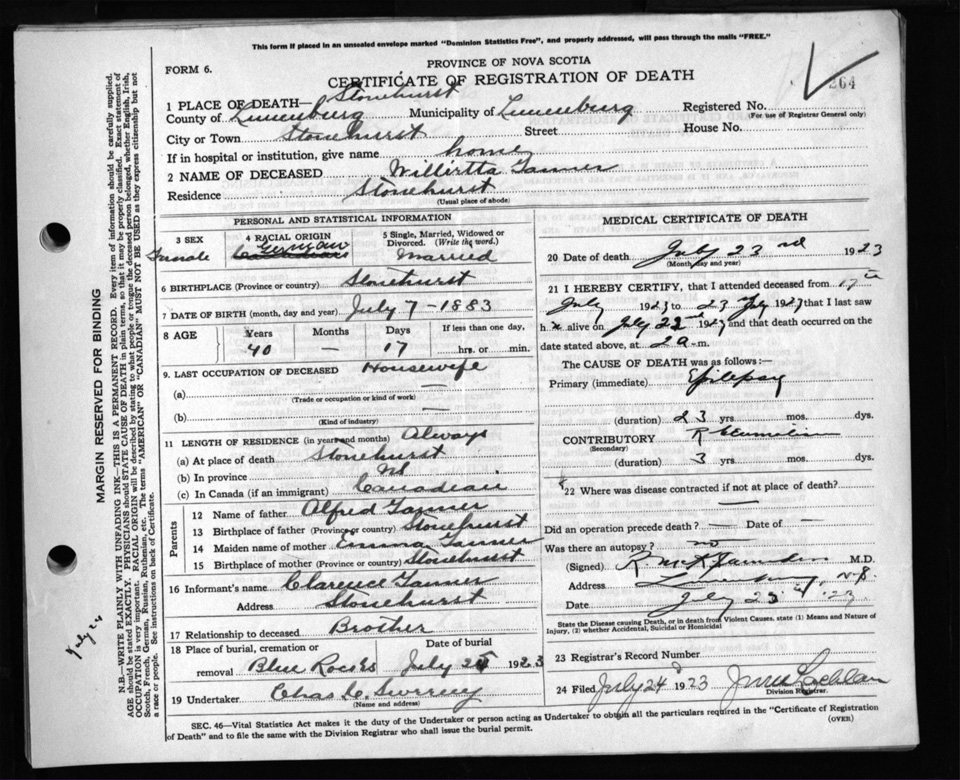 This form if placed in an unsealed envelope marked "Dominion Statistics Free", and properly addressed, will pass through the mails "FREE."
FORM 6.
PROVINCE OF NOVA SCOTIA
CERTIFICATE OF REGISTRATION OF DEATH
264
1 PLACE OF DEATH— Stonehurst
County of Lunenburg Municipality of Lunenburg Registered No.
(For use of Registrar General only)
City or Town Stonehurst Street House No.
If in hospital or institution, give name home
2 NAME OF DECEASED Willirtta Tanner
Residence Stonehurst
(Usual place of abode)
PERSONAL AND STATISTICAL INFORMATION
3 SEX 4 RACIAL ORIGIN 5 Single, Married, Widowed or Divorced. (Write the word.)
Female German Married
6 BIRTHPLACE (Province or country) Stonehurst
7 DATE OF BIRTH (month, day and year) July 7 - 1883
8 AGE Years Months Days If less than one day,
40 — 17 hrs. or min.
9. LAST OCCUPATION OF DECEASED Housewife
(a) —
(Trade or occupation or kind of work)
(b) —
(Kind of industry)
11 LENGTH OF RESIDENCE (in years and months) Always
(a) At place of death Stonehurst
(b) In province NS
(c) In Canada (if an immigrant) Canadian
Parents
12 Name of father Alfred Tanner
13 Birthplace of father (Province or country) Stonehurst
14 Maiden name of mother Emma Tanner
15 Birthplace of mother (Province or country) Stonehurst
16 Informant's name Clarence Tanner
Address Stonehurst
17 Relationship to deceased Brother
18 Place of burial, cremation or removal Date of burial
Blue Rocks July 25 1923
19 Undertaker Chas
(Name and address)
MEDICAL CERTIFICATE OF DEATH
20 Date of death July 23rd 1923
(Month day and year)
21 I HEREBY CERTIFY, that I attended deceased from 17th
July 1923 to 23 July 1923 that I last saw
h alive on July 22nd 1923 and that death occurred on the
date stated above, at 2 a.m.
The CAUSE OF DEATH was as follows:—
Primary (immediate) Epilepsy
(duration) 23 yrs. mos. dys.
CONTRIBUTORY
(Secondary)
(duration) 3 yrs. mos. dys.
22 Where was disease contracted if not at place of death?
—
Did an operation precede death? — Date of —
Was there an autopsy? no
(Signed) M.D.
Address Lunenburg, N.S.
Date July 23rd '23
State the Disease causing Death, or in death from Violent Causes, state (1) Means and Nature of Injury, (2) whether Accidental, Suicidal or Homicidal
23 Registrar's Record Number
24 Filed July 24 1923
Division Registrar.
SEC. 46—Vital Statistics Act makes it the duty of the Undertaker or person acting as Undertaker to obtain all the particulars required in the "Certificate of Registration
of Death" and to file the same with the Division Registrar who shall issue the burial permit.
(OVER)
MARGIN RESERVED FOR BINDING
N.B.—WRITE PLAINLY WITH UNFADING INK—THIS IS A PERMANENT RECORD. Every item of information should be carefully supplied.
AGE should be stated EXACTLY. PHYSICIANS should STATE CAUSE OF DEATH in plain terms, so that it may be properly classified. Exact statement of
OCCUPATION is very important. RACIAL ORIGIN will be described by stating to what people or tongue the deceased person belonged, whether English, Irish,
Scotch, French, German, Russian, Ruthenian, etc. The terms "AMERICAN" OR "CANADIAN" MUST NOT BE USED as they express citizenship but not
a race or people. See instructions on back of Certificate.